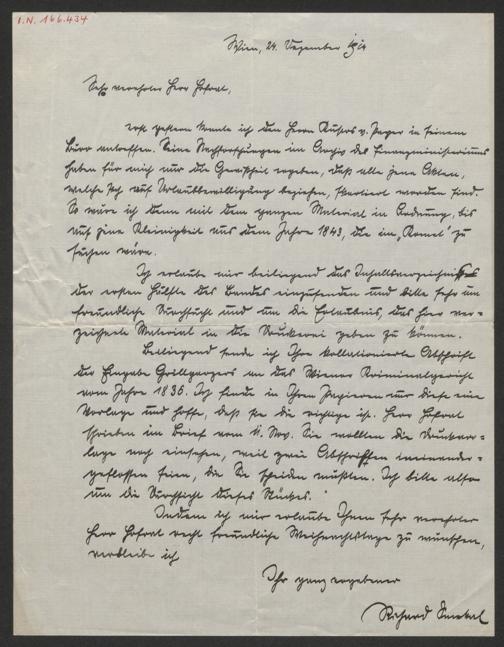 I.N. 166.434
Wien, 24. Dezember 1914
Sehr verehrter Herr Hofrat,
erst gestern konnte ich den Herrn Kustos v. Payer in seinem
Büro antreffen. Seine Nachforschungen im Archiv des Finanzministeriums
haben für mich nur die Gewißheit ergeben, daß alle jene Akten,
welche sich auf Urlaubsbewilligung beziehen, skartiert worden sind.
So wäre ich denn mit dem ganzen Material in Ordnung, bis
auf eine Kleinigkeit aus dem Jahre 1843, die im „Komet“ zu
suchen wäre.
Ich erlaube mir beiliegend das Inhaltsverzeichnis
der ersten Hälfte des Bandes einzusenden und bitte sehr um
freundliche Durchsicht und um die Erlaubnis, das hier ver-
zeichnete Material in die Druckerei geben zu können.
Beiliegend sende ich Ihre kollationierte Abschrift
der Eingabe Grillparzers an das Wiener Kriminalgericht
vom Jahre 1836. Ich finde in Ihren Papieren nur diese eine
Vorlage und hoffe, daß sie die richtige ist. Herr Hofrat
schrieben im Brief vom 11. Nov. Sie wollten die Druckvor-
lage noch einsehen, weil zwei Abschriften ineinander-
geflossen seien, die Sie scheiden mußten. Ich bitte also
um die Durchsicht dieses Stückes.
Indem ich mir erlaube Ihnen sehr verehrter
Herr Hofrat recht freundliche Weihnachtstage zu wünschen,
verbleibe ich
Ihr ganz ergebener
Richard Smekal